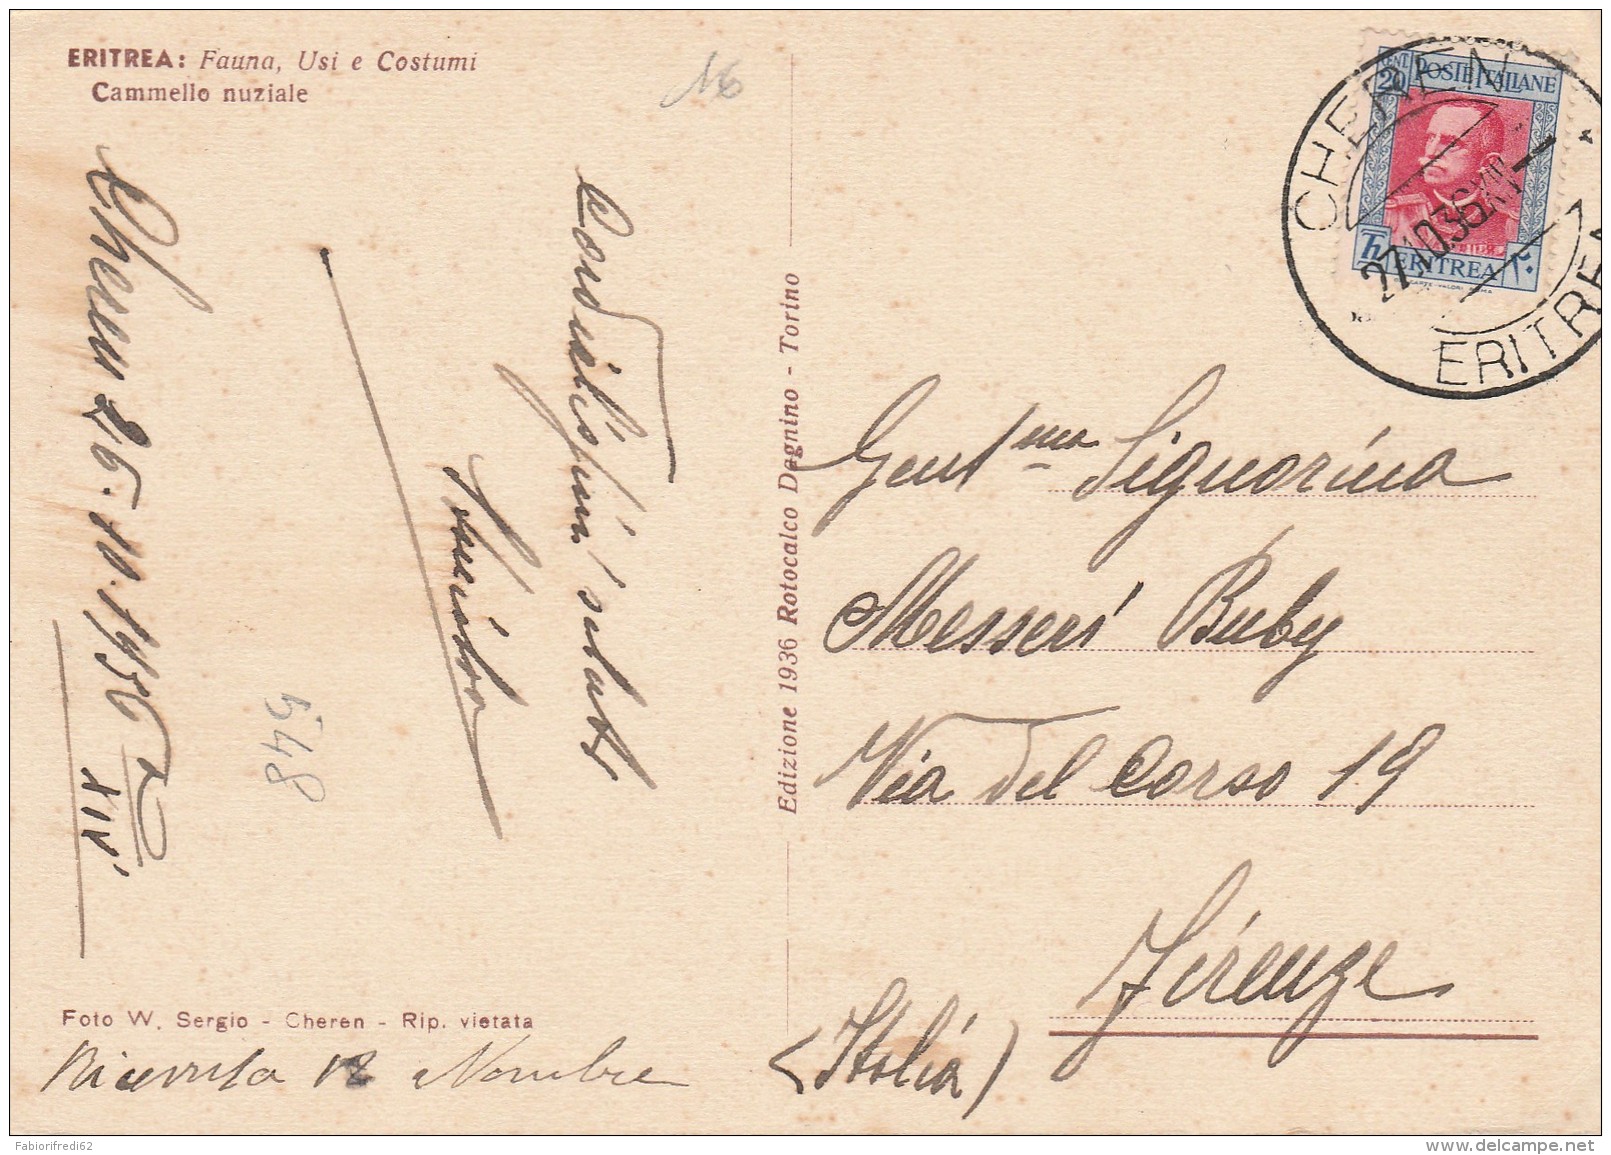 ERITREA: Fauna, Usi e Costumi
Cammello nuziale
16
Cheren 26.10.1936
XIV
Cordialissimi saluti
548
Foto W. Sergio - Cheren - Rip. vietata
Ricevuta 18 Novembre
Edizione 1936 Rotocalco Dagnino - Torino
CENT. 20 POSTE ITALIANE
ERITREA
٢٠
CHEREN
27.10.36.XIV
ERITREA
Gent.ma Signorina
Messeri Buby
Via del Corso 19
Firenze
(Italia)
Fabiorifredi62
delcampe.net